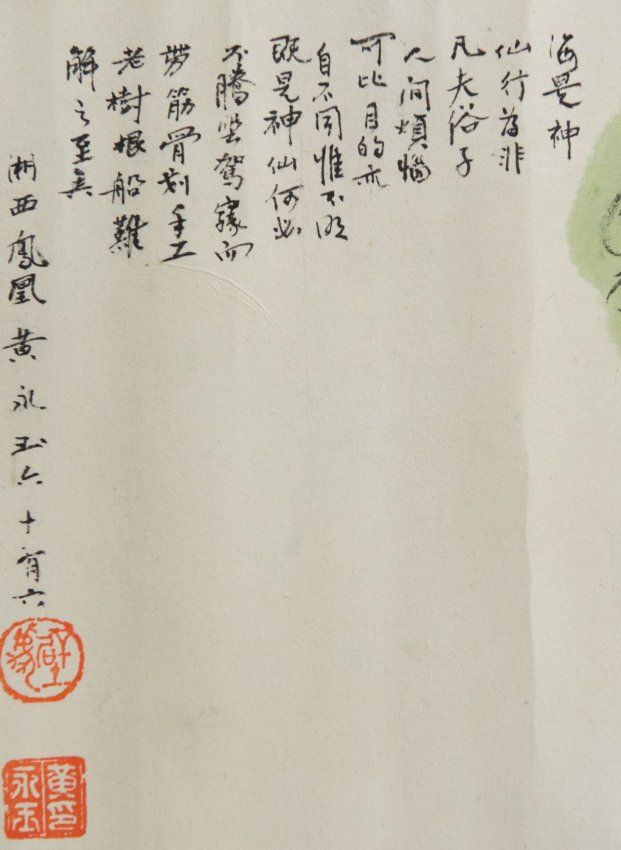 海是神
仙行為非
凡夫俗子
人間煩惱
可比目的亦
自不同惟不明
既是神仙何必
不騰雲駕霧而
勞筋骨划手工
老樹根船難
解之至矣
湘西鳳凰黃永玉六十有六
黃永玉印